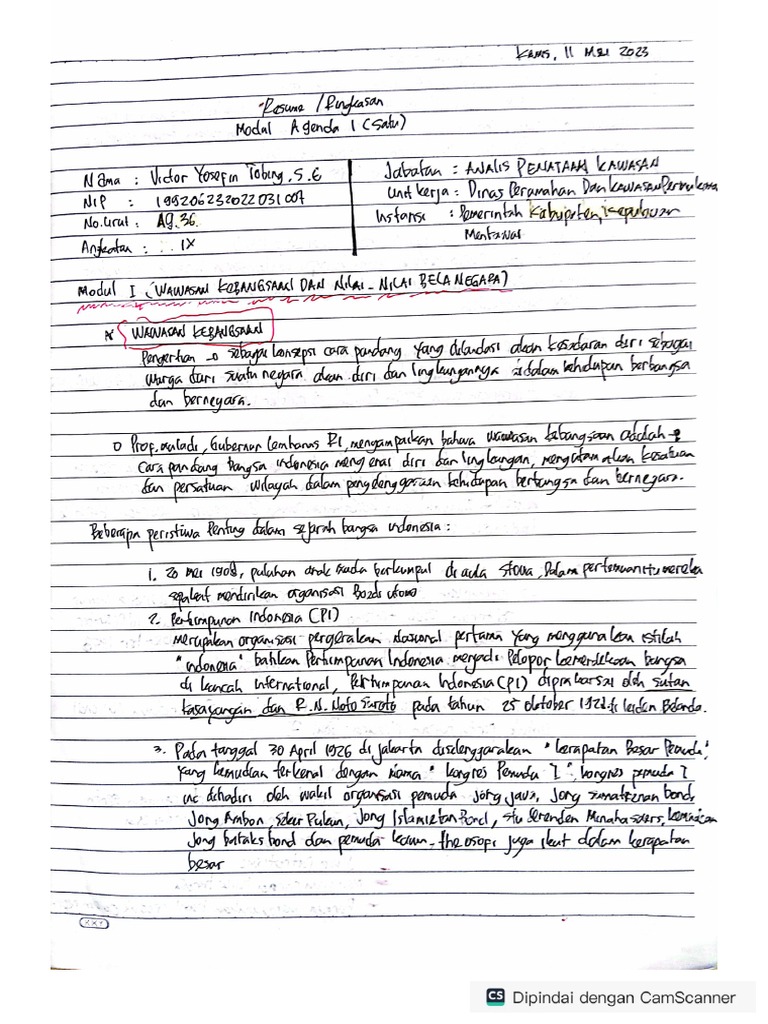 Kamis, 11 Mei 2023
Resume / Ringkasan
Modul Agenda 1 (Satu)
Nama : Victor Yosefin Tobing, S.E
NIP : 199206232022031007
No.Urut : A9.36.
Angkatan : IX
Jabatan : ANALIS PENATAAN KAWASAN
Unit kerja : Dinas Perumahan Dan Kawasan Permukiman
Instansi : Pemerintah Kabupaten Kepulauan
Mentawai
Modul I (WAWASAN KEBANGSAAN DAN NILAI - NILAI BELA NEGARA)
* WAWASAN KEBANGSAAN
Pengertian → sebagai konsepsi cara pandang yang dilandasi akan kesadaran diri sebagai
warga dari suatu negara akan diri dan lingkungannya didalam kehidupan berbangsa
dan bernegara.
o Prof. Muladi, Gubernur Lemhanas RI, menyampaikan bahwa wawasan kebangsaan adalah →
cara pandang bangsa indonesia mengenai diri dan lingkungan, mengutamakan kesatuan
dan persatuan wilayah dalam penyelenggaraan kehidupan berbangsa dan bernegara.
Beberapa peristiwa Penting dalam sejarah bangsa indonesia :
1. 20 Mei 1908, puluhan anak muda berkumpul di aula stovia, Dalam pertemuan itu mereka
sepakat mendirikan organisasi Boedi utomo
2. Perhimpunan Indonesia (PI)
Merupakan organisasi pergerakan Nasional pertama yang menggunakan istilah
"indonesia" bahkan Perhimpunan Indonesia menjadi Pelopor kemerdekaan bangsa
di kancah international, Perhimpunan Indonesia (PI) diprakarsai oleh sutan
kasayangan dan R.N. Noto Suroto pada tahun 25 oktober 1928 di leiden Belanda.
3. Pada tanggal 30 April 1926 di jakarta diselenggarakan "kerapatan Besar Pemuda",
yang kemudian terkenal dengan nama "kongres Pemuda I", kongres pemuda I
ini dihadiri oleh wakil organisasi pemuda jong java, jong sumatranan bond,
Jong Ambon, Sekar Rukun, Jong Islamieten Bond, Studerenden Minahasaers, kemudian
Jong bataks bond dan pemuda kaum theosofi juga ikut dalam kerapatan
besar
CS Dipindai dengan CamScanner